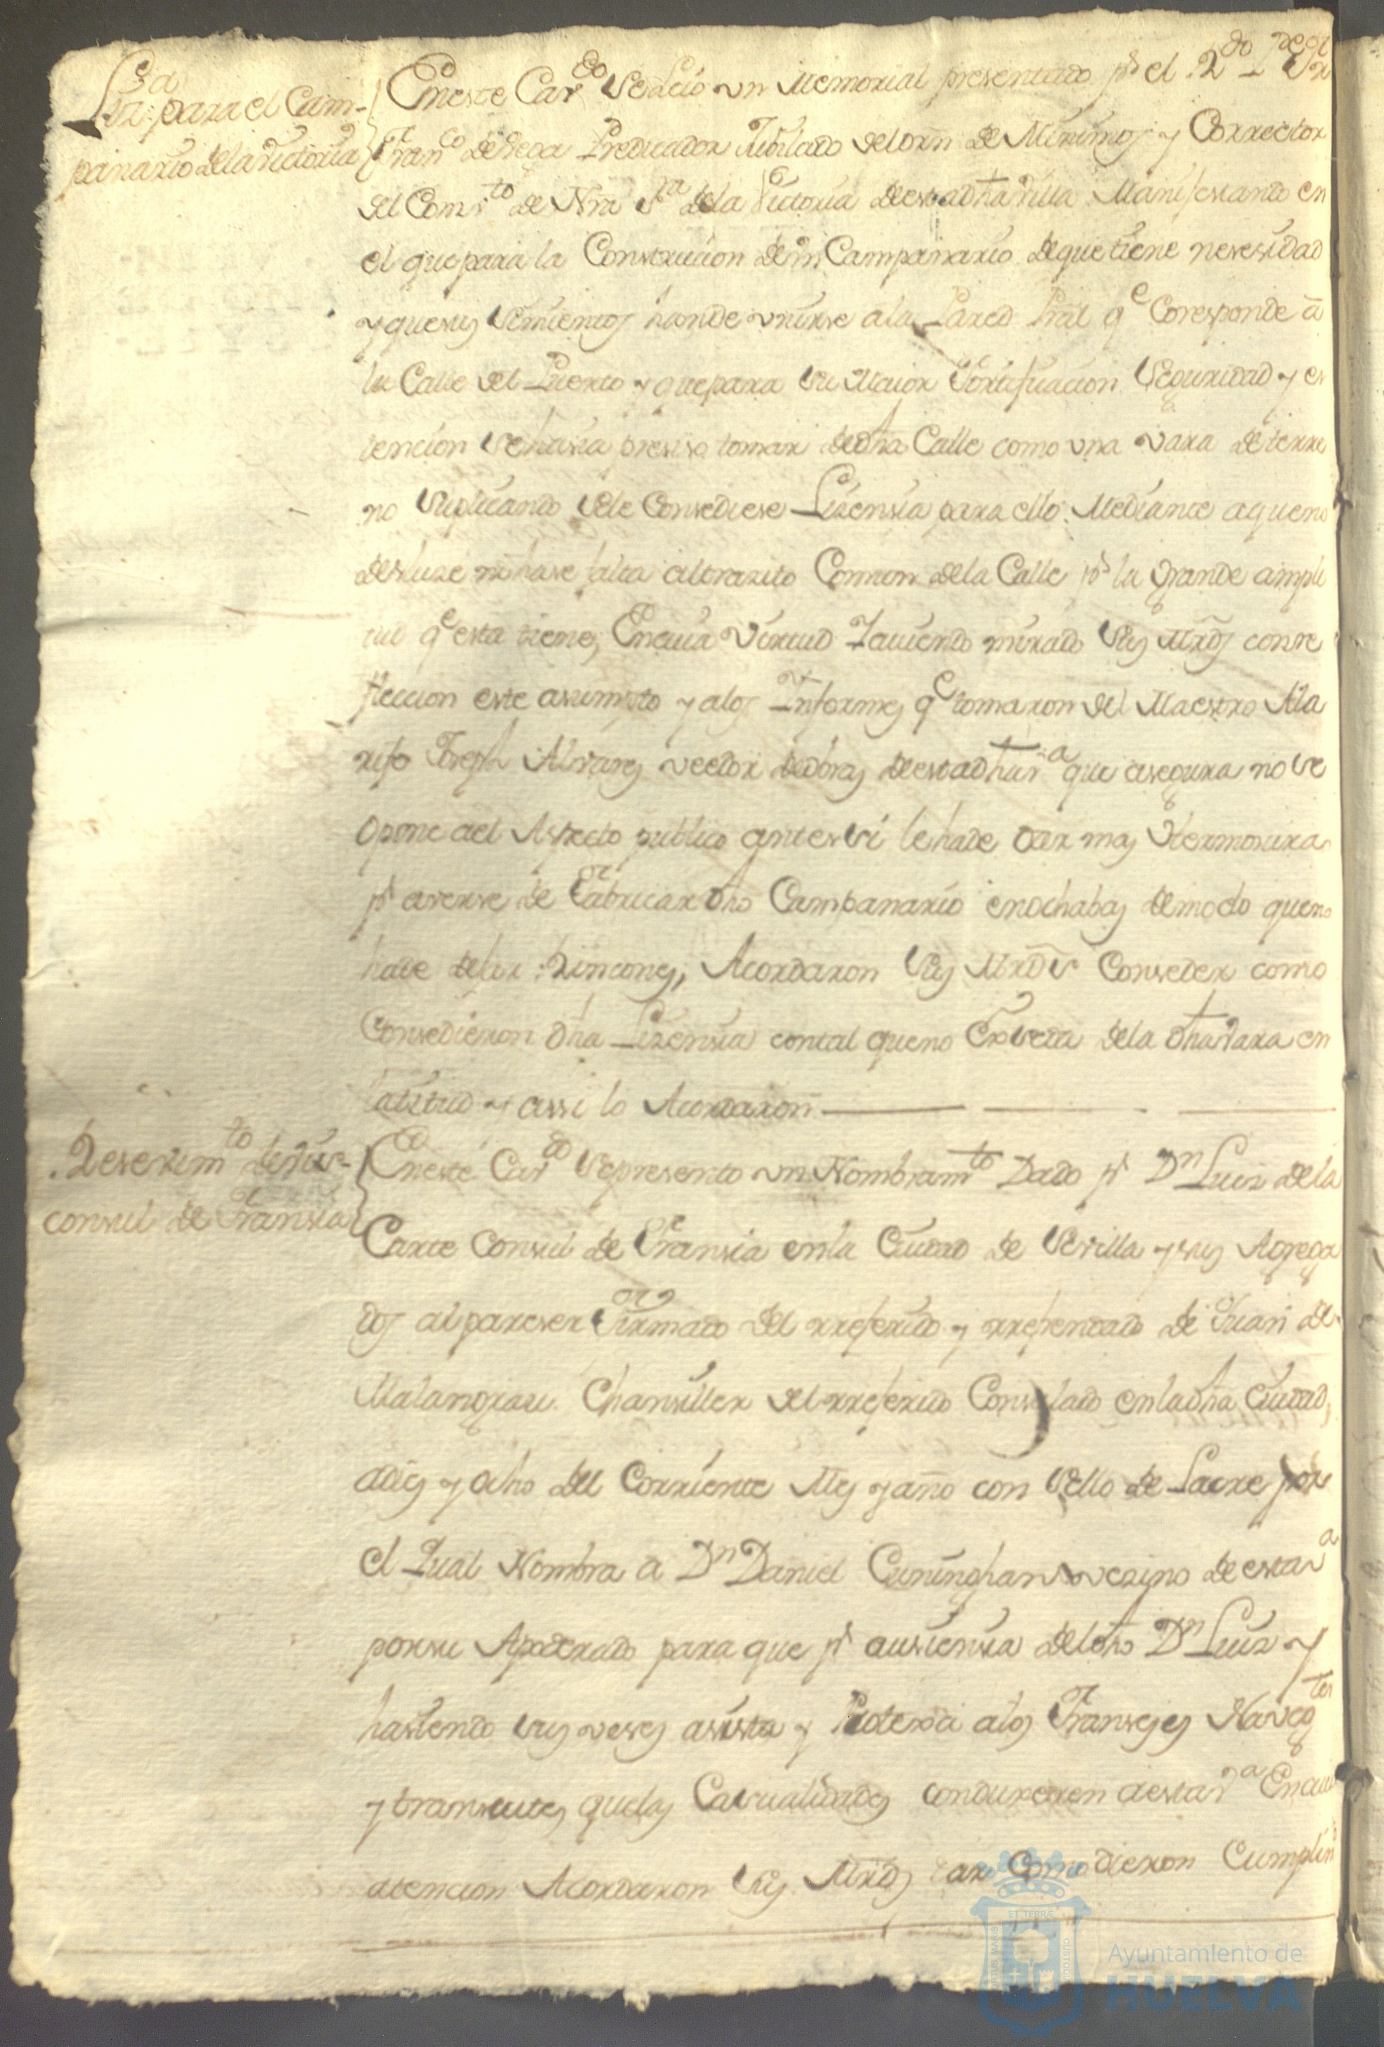 Lizª para el Cam-
panario de la Victoria
En este Cavdo Se Leio un Memorial presentado pr el Rdo Pe fr
Franco de Vega Predicador Jubilado del orn de Minimos y Corrector
del Convto de Nra Sra de la Victoria de esta dha Villa Manifestando en
el que para la Construcion de un Campanario de que tiene nesesidad
y que sus Simientos han de unirse a la Pared Pral qe Coresponde â
la Calle del Puerto y que para su Maior Fortificacion Seguridad y es
tencion Se hasia presiso tomar de dha Calle como una vara de terre
no Suplicando Se le Consediese Lizensia para ello Mediante a que no
desluze ni hase falta al tranzito Comun de la Calle pr la grande ampli
tud qe esta tiene, En cuia Virtud Haviendo mirado Sus Mrds con re
fleccion este asumpto y a los Informes qe tomaron del Maestro Ala
rife Joseph Alvares veedor de obras de esta dha Va que asegura no Se
opone a el Aspecto publico antes Si le ha de dar mas Hermosura
pr averse de Fabricar dho Campanario en ochabas de modo que no
ha de dejar Rincones, Acordaron Sus Mrds Conseder como
Consedieron dha Lizensia con tal que no Exseda de la dha Vara en
latitud y assi lo Acordaron
Reserbimto de Vis-
consul de Fransia
En este Cavdo Se presento un Nombramto Dado pr Dn Luis de la
Carte Consul de Fransia en la Ciudad de Sevilla y sus Agrega
dos al pareser Firmado del rreferido y rrefrendado de Juan de
Malangrau Chansiller del rreferido Consulado en la dha Ciudad,
a dies y ocho del Corriente Mes y año con Sello de Lacre por
el Qual Nombra a Dn Daniel Cuningham vezino de esta Va
por su Apoderado para que pr ausiensia del dho Dn Luis y
hasiendo sus veses asista y Protexa a los Franseses Navegtes
y transeutes que las Casualidades conduxeren a esta Va En cuia
atencion Acordaron Sus Mrds dar Como dieron Cumplim
Ayuntamiento de
HUELVA